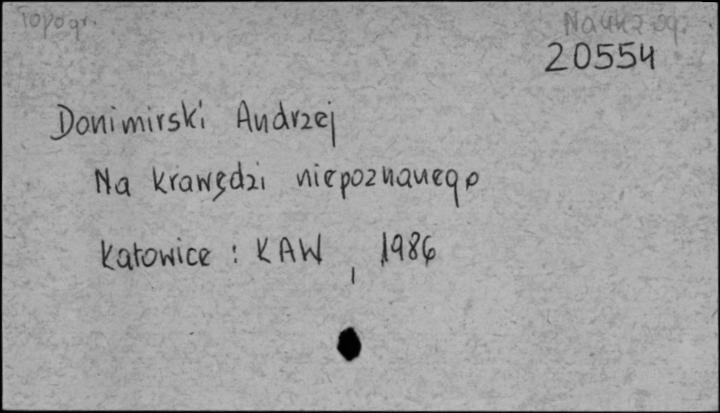 Topogr. Nauka og.
20554
Donimirski Andrzej
Na krawędzi niepoznanego
Katowice : KAW, 1986